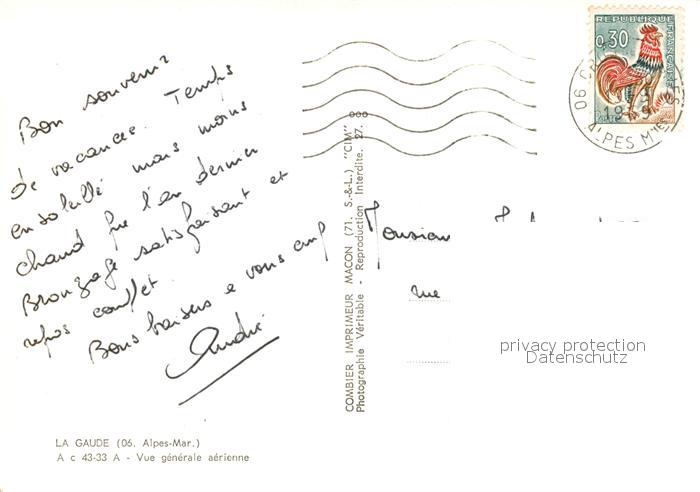 Bon souvenir
de vacances. Temps
ensoleillé mais moins
chaud que l'an dernier
Bronzage satisfaisant et
repos complet.
Bons baisers a vous cinq
André
LA GAUDE (06. Alpes-Mar.)
A c 43-33 A - Vue générale aérienne
COMBIER IMPRIMEUR MACON (71. S.-&-L.) "CIM"
Photographie Véritable - Reproduction Interdite. 27.
REPUBLIQUE FRANCAISE
0,30
06
ALPES Mmes
Monsieur
rue
privacy protection
Datenschutz